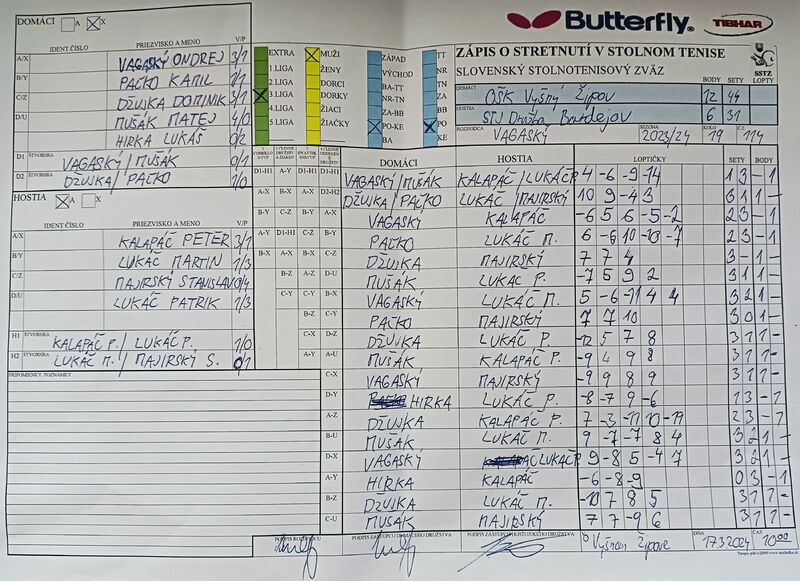 DOMÁCI A X
Butterfly TIBHAR
IDENT.ČÍSLO PRIEZVISKO A MENO V/P
A/X VAGASKÝ ONDREJ 3/1
B/Y PAĽKO KAMIL 1/1
C/Z DŽUJKA DOMINIK 3/1
D/U MUŠÁK MATEJ 4/0
HIRKA LUKÁŠ 0/2
D1 ŠTVORHRA VAGASKÝ/MUŠÁK 0/1
D2 ŠTVORHRA DŽUJKA/PAĽKO 1/0
HOSTIA X A X
IDENT.ČÍSLO PRIEZVISKO A MENO V/P
A/X KALAPÁČ PETER 3/1
B/Y LUKÁČ MARTIN 1/3
C/Z MAJIRSKÝ STANISLAV 0/4
D/U LUKÁČ PATRIK 1/3
H1 ŠTVORHRA KALAPÁČ P. / LUKÁČ P. 1/0
H2 ŠTVORHRA LUKÁČ M. / MAJIRSKÝ S. 0/1
PRIPOMIENKY, POZNÁMKY
EXTRA
1.LIGA
2.LIGA
3.LIGA
4.LIGA
5.LIGA
MUŽI
ŽENY
DORCI
DORKY
ŽIACI
ŽIAČKY
ZÁPAD
VÝCHOD
BA-TT
NR-TN
ZA-BB
PO-KE
BA
TT
NR
TN
ZA
BB
PO
KE
ZÁPIS O STRETNUTÍ V STOLNOM TENISE
SLOVENSKÝ STOLNOTENISOVÝ ZVÄZ
SSTZ
BODY SETY LOPTY
DOMÁCI OŠK Vyšný Žipov 12 44
HOSTIA STJ Družba Bardejov 6 31
ROZHODCA VAGASKÝ SEZÓNA 2023/24 KOLO 19 Č. 114
DOMÁCI HOSTIA LOPTIČKY SETY BODY
D1-H1 VAGASKÝ/MUŠÁK KALAPÁČ/LUKÁČ P 4 -6 -9 -14 1 3 - 1
D2-H2 DŽUJKA/PAĽKO LUKÁČ/MAJIRSKÝ 10 9 -4 3 3 1 1 -
A-X VAGASKÝ KALAPÁČ -6 5 6 -5 -2 2 3 - 1
B-Y PAĽKO LUKÁČ M. 6 -6 10 -10 -7 2 3 - 1
C-Z DŽUJKA MAJIRSKÝ 7 7 4 3 - 1 -
D-U MUŠÁK LUKÁČ P. -7 5 9 2 3 1 1 -
A-Y VAGASKÝ LUKÁČ M. 5 -6 -11 4 4 3 2 1 -
B-X PAĽKO MAJIRSKÝ 7 7 10 3 0 1 -
D-Z DŽUJKA LUKÁČ P. -12 5 7 8 3 1 1 -
A-U MUŠÁK KALAPÁČ P. -9 4 9 8 3 1 1 -
C-X VAGASKÝ MAJIRSKÝ -9 9 8 9 3 1 1 -
D-Y HIRKA LUKÁČ P. -8 -7 9 -6 1 3 - 1
A-Z DŽUJKA KALAPÁČ P. 7 -3 -11 10 -19 2 3 - 1
B-U MUŠÁK LUKÁČ M. 9 -7 -7 8 4 3 2 1 -
D-X VAGASKÝ LUKÁČ P 9 -8 5 -4 7 3 2 1 -
A-Y HIRKA KALAPÁČ -6 -8 -9 0 3 - 1
B-Z DŽUJKA LUKÁČ M. -10 7 8 5 3 1 1 -
C-U MUŠÁK MAJIRSKÝ 7 7 -9 6 3 1 1 -
PODPIS ROZHODCU PODPIS ZÁSTUPCU DOMÁCEHO DRUŽSTVA PODPIS ZÁSTUPCU HOSŤUJÚCEHO DRUŽSTVA Vyšnom Žipove DŇA 17.3.2024 ČAS 10:00